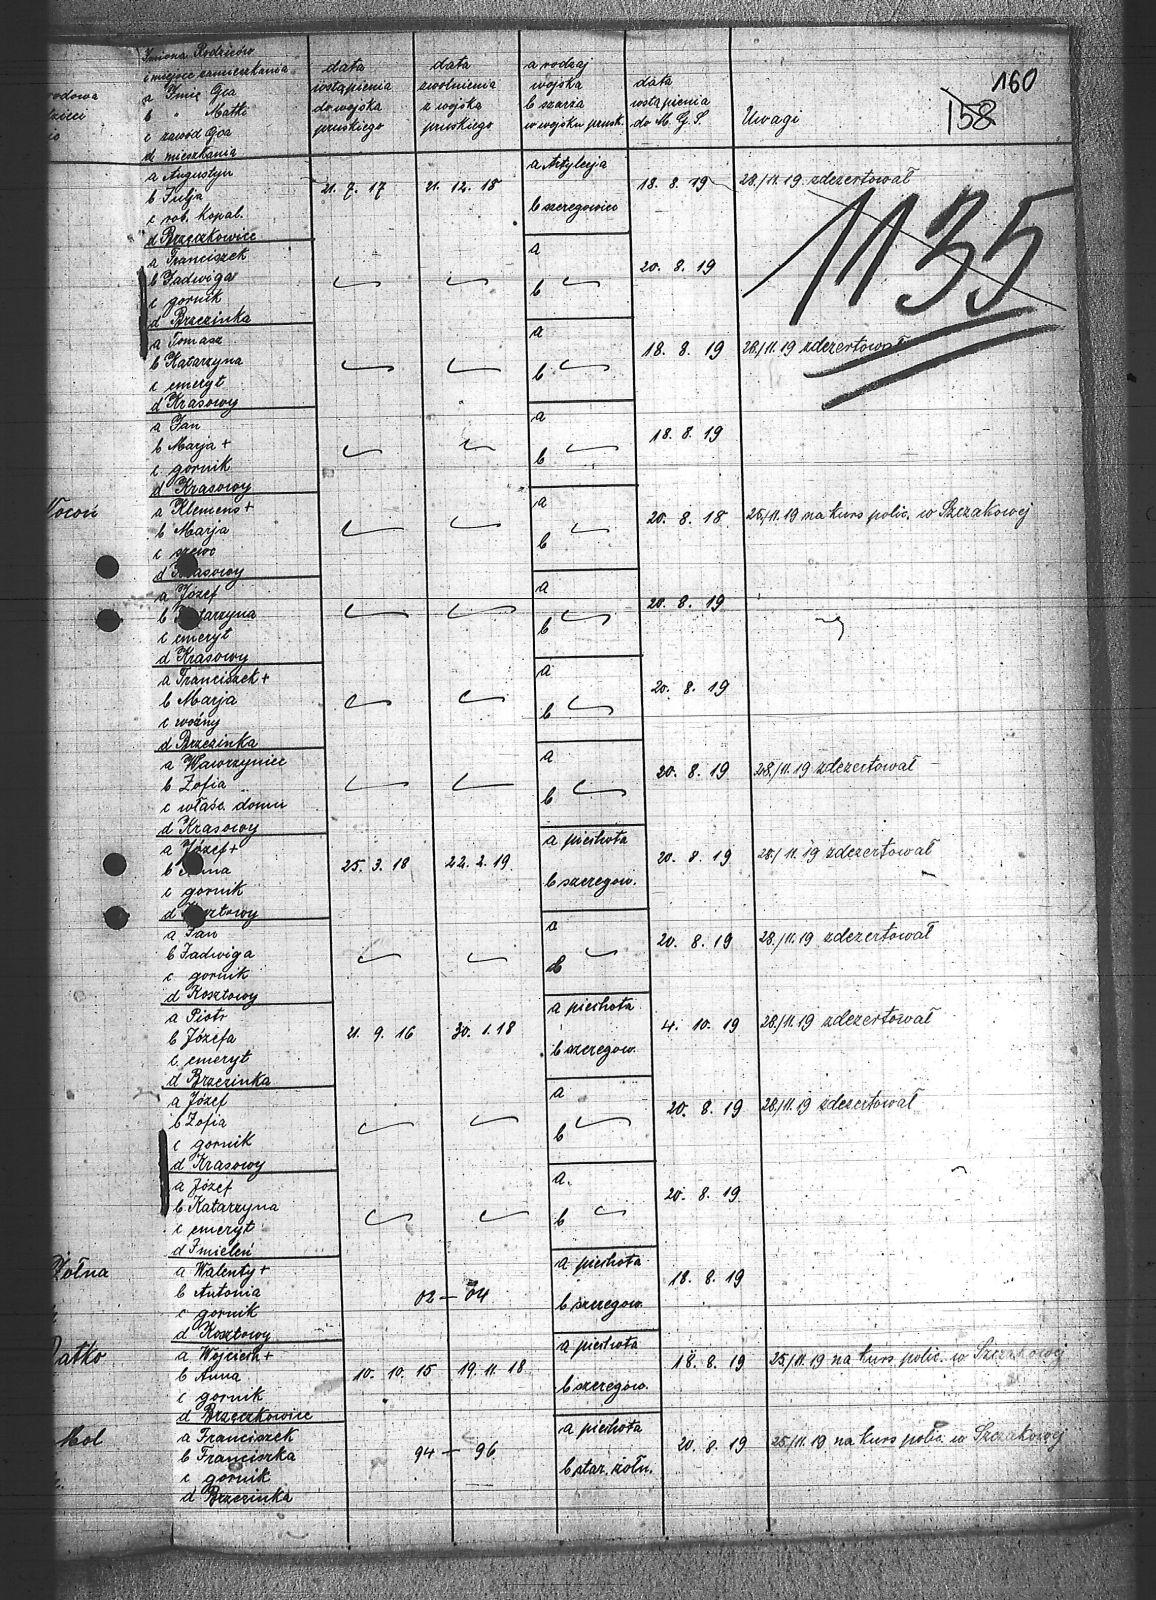 160
158
Imiona Rodziców
i miejsce zamieszkania
a Imię Ojca
b " Matki
c zawód Ojca
d mieszkania
data
wstąpienia
do wojska
pruskiego
data
zwolnienia
z wojska
pruskiego
a rodzaj
wojska
b szarża
w wojsku prusk.
data
wstąpienia
do M. G. S.
Uwagi
1135
a Augustyn
b Julja
c rob. kopal.
d Brzęczkowice
21. 7. 17
21. 12. 18
a Artylerja
b szeregowiec
18. 8. 19
28./11.19 zdezertował
a Franciszek
b Jadwiga
c gornik
d Brzezinka
a
b
20. 8. 19
a Tomasz
b Katarzyna
c emeryt
d Krasowy
a
b
18. 8. 19
28./11.19 zdezertował
a Jan
b Marja +
c gornik
d Krasowy
a
b
18. 8. 19
Kocoń
a Klemens +
b Marja
c szewc
d Krasowy
a
b
20. 8. 18
25/11.19 na kurs polic. w Szczakowej
a Józef
b Katarzyna
c emeryt
d Krasowy
a
b
20. 8. 19
a Franciszek +
b Marja
c woźny
d Brzezinka
a
b
20. 8. 19
a Wawrzyniec
b Zofia
c właśc. domu
d Krasowy
a
b
20. 8. 19
28./11.19 zdezertował
a Józef +
b Anna
c gornik
d Kosztowy
25. 3. 18
22. 2. 19
a piechota
b szeregow.
20. 8. 19
28./11.19 zdezertował
a Jan
b Jadwiga
c gornik
d Kosztowy
a
b
20. 8. 19
28./11.19 zdezertował
a Piotr
b Józefa
c emeryt
d Brzezinka
21. 9. 16
30. 1. 18
a piechota
b szeregow.
4. 10. 19
28./11.19 zdezertował
a Józef
b Zofia
c gornik
d Krasowy
a
b
20. 8. 19
28./11.19 zdezertował
a Józef
b Katarzyna
c emeryt
d Imieleń
a.
b
20. 8. 19
Żołna
a Walenty +
b Antonia
c gornik
d Kosztowy
02 – 04
a piechota
b szeregow.
18. 8. 19
a Wojciech +
b Anna
c gornik
d Brzęczkowice
10. 10. 15
19. 11. 18
a piechota
b szeregow.
18. 8. 19
25/11.19 na kurs polic. w Szczakowej
a Franciszek
b Franciszka
c gornik
d Brzezinka
94 – 96
a piechota
b star. żołn.
20. 8. 19
25/11.19 na kurs polic. w Szczakowej